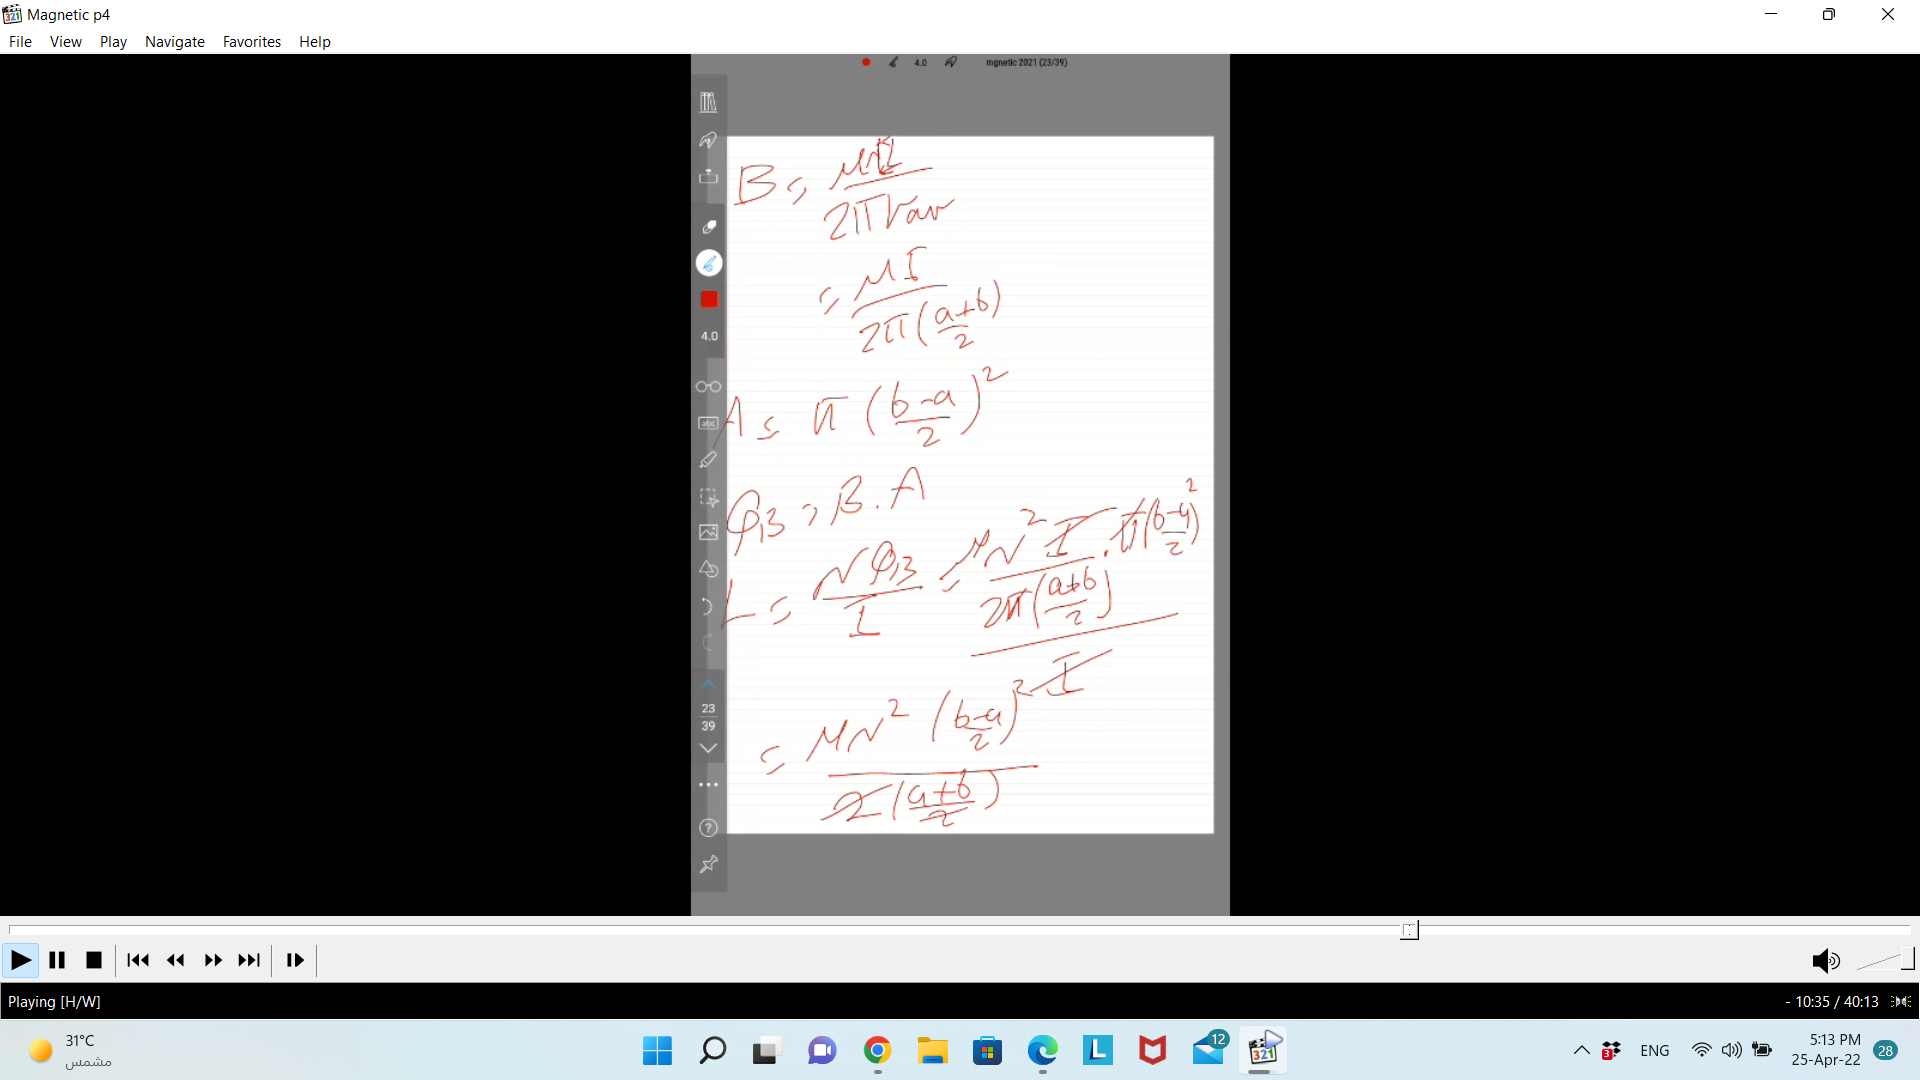 Magnetic p4
File View Play Navigate Favorites Help
4.0 mgnetic 2021 (23/39)
B = μNI / 2πrav
= μI / 2π(a+b / 2)
4.0
A = π (b-a / 2)²
abc
φB = B.A
L = NφB / I = μN²I / 2π(a+b / 2) . π(b-a / 2)² / I
23
39
= μN² (b-a / 2)² / 2(a+b / 2)
Playing [H/W]
- 10:35 / 40:13
31°C
مشمس
321
12
321
3
ENG
5:13 PM
25-Apr-22
28